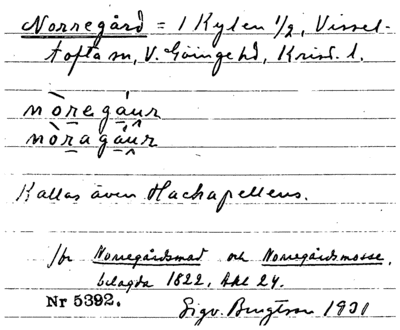 Norregård = 1 Kylen 1/2, Vissel-
tofta sn, V. Göinge hd, Krist. l.
nòregáu̯r
nòragáu̯r
Kallas även Hackapellens.
Jfr Norregårdsmad och Norregårdsmosse,
belagda 1822, Akt 24.
Nr 5392.
Sigv. Bengtsson 1930